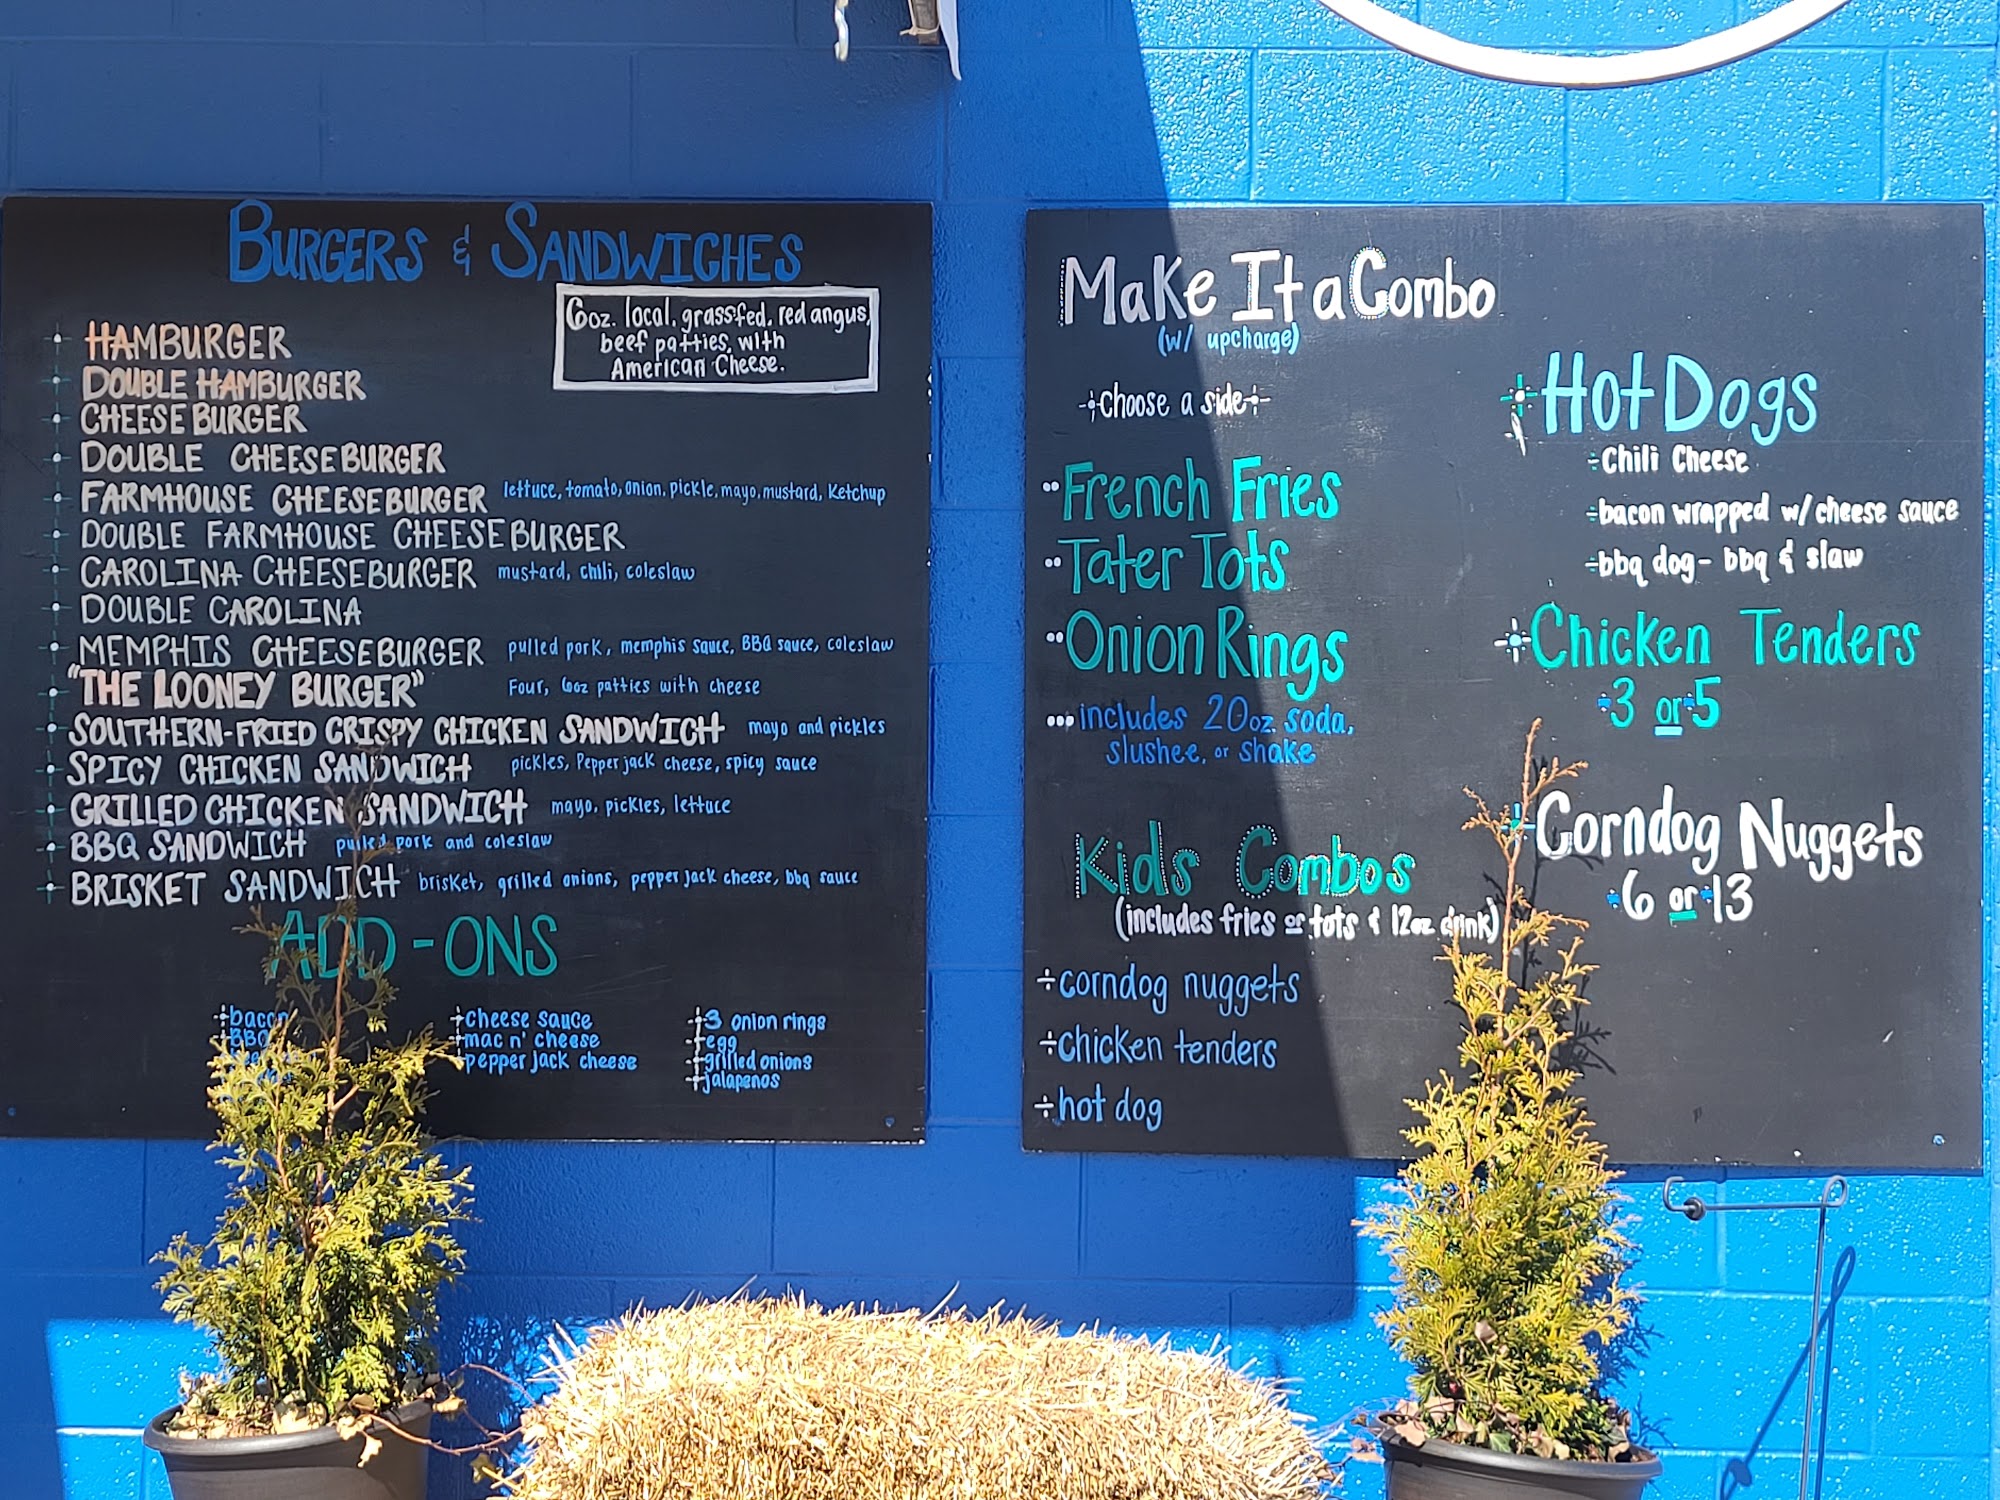 BURGERS & SANDWICHES
6oz. local, grassfed, red angus,
beef patties, with
American Cheese.
HAMBURGER
DOUBLE HAMBURGER
CHEESEBURGER
DOUBLE CHEESEBURGER
FARMHOUSE CHEESEBURGER lettuce, tomato, onion, pickle, mayo, mustard, Ketchup
DOUBLE FARMHOUSE CHEESEBURGER
CAROLINA CHEESEBURGER mustard, chili, coleslaw
DOUBLE CAROLINA
MEMPHIS CHEESEBURGER pulled pork, memphis sauce, BBQ sauce, coleslaw
"THE LOONEY BURGER" Four, 6oz patties with cheese
SOUTHERN-FRIED CRISPY CHICKEN SANDWICH mayo and pickles
SPICY CHICKEN SANDWICH pickles, Pepper jack cheese, spicy sauce
GRILLED CHICKEN SANDWICH mayo, pickles, lettuce
BBQ SANDWICH pulled pork and coleslaw
BRISKET SANDWICH brisket, grilled onions, pepper jack cheese, bbq sauce
ADD-ONS
bacon
BBQ
cheese sauce
mac n' cheese
pepper jack cheese
3 onion rings
egg
grilled onions
jalapenos
Make It a Combo
(w/ upcharge)
choose a side
French Fries
Tater Tots
Onion Rings
includes 20oz. soda,
slushee, or shake
Kids Combos
(includes fries or tots & 12oz drink)
corndog nuggets
chicken tenders
hot dog
Hot Dogs
Chili Cheese
bacon wrapped w/ cheese sauce
bbq dog- bbq & slaw
Chicken Tenders
3 or 5
Corndog Nuggets
6 or 13